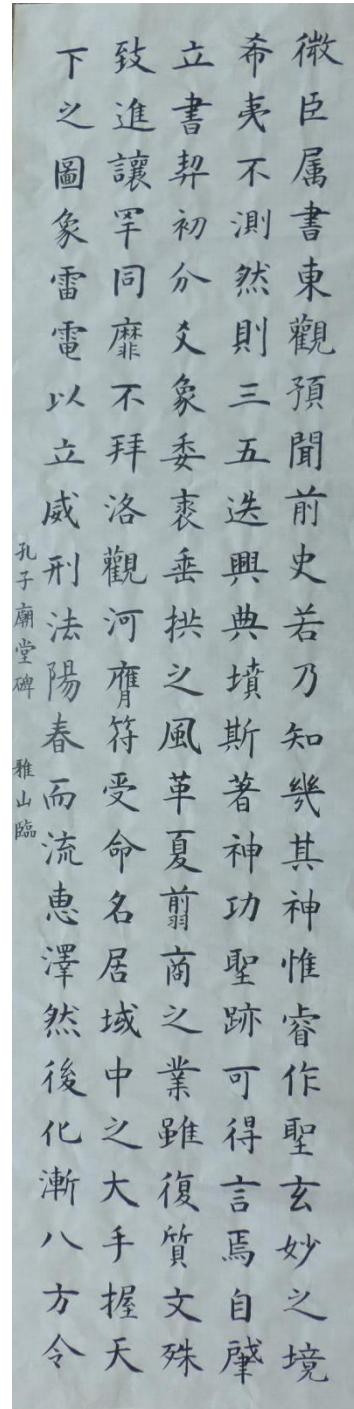 微臣属書東觀預聞前史若乃知幾其神惟睿作聖玄妙之境
希夷不測然則三五迭興典墳斯著神功聖跡可得言焉自肇
立書契初分爻象委裘垂拱之風革夏翦商之業雖復質文殊
致進讓罕同靡不拜洛觀河膺符受命名居域中之大手握天
下之圖象雷電以立威刑法陽春而流惠澤然後化漸八方令
孔子廟堂碑 雅山臨